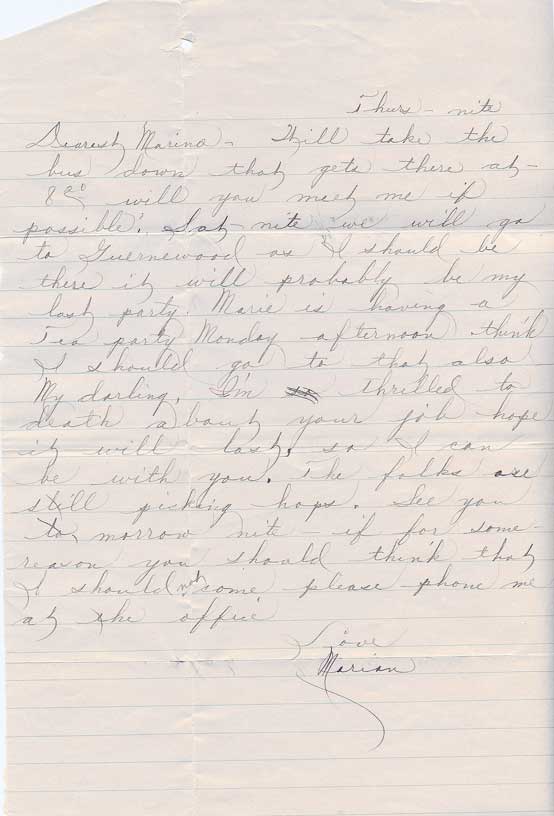 Thurs - nite
Dearest Marino - Will take the
bus down that gets there at
8 20 will you meet me if
possible. Sat - nite we will go
to Guernewood as I should be
there it will probably be my
last party. Marie is having a
Tea party Monday afternoon think
I should go to that also
My darling, I'm thrilled to
death about your job hope
it will last, so I can
be with you. The folks are
still picking hops. See you
to morrow nite - if for some-
reason you should think that
I should not come please phone me
at the office
Love
Marian